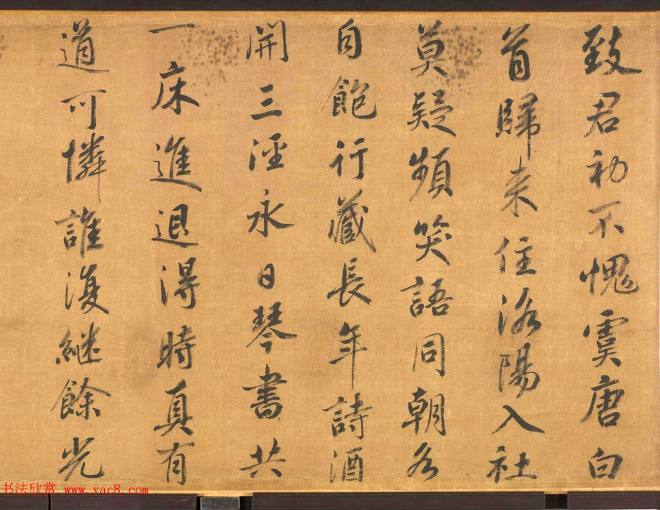 致君初不愧虞唐白
首歸来住洛陽入社
莫疑頻笑語同朝各
自飽行藏長年詩酒
開三涇永日琴書共
一床進退得時真有
道可憐誰復繼餘光
书法欣赏 www.yac8.com